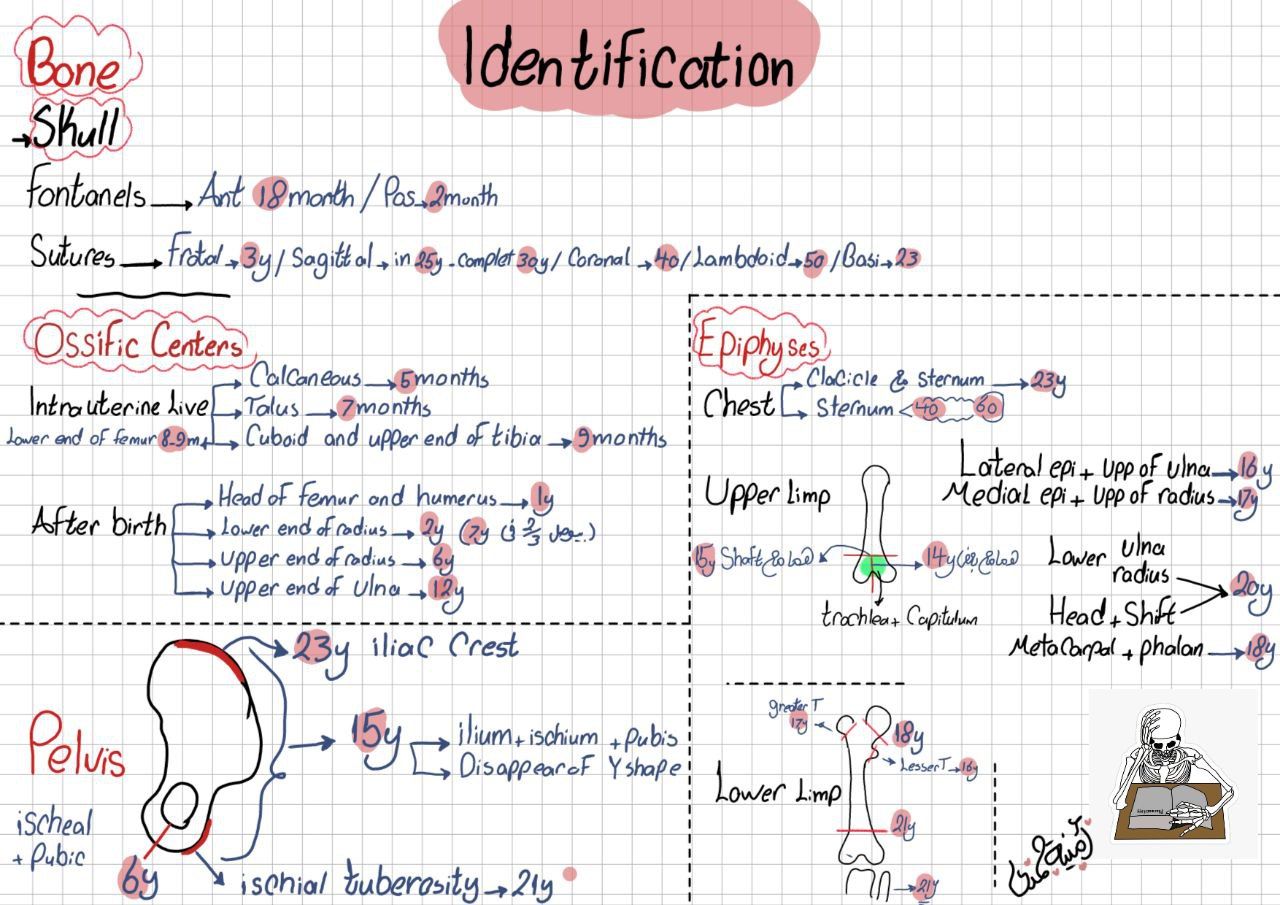 Identification
Bone
→Skull
Fontanels → Ant 18 month / Pos→2month
Sutures → Frotal→3y / Sagittal→in 25y - complet 30y / Coronal →40 / Lambdoid→50 / Basi→23
Ossific Centers
Intrauterine Live
Calcaneous → 5 months
Talus → 7 months
Lower end of femur 8-9m
Cuboid and upper end of tibia → 9 months
After birth
Head of femur and humerus → 1y
Lower end of radius → 2y
Upper end of radius → 6y
Upper end of Ulna → 12y
Epiphyses
Chest
Clacicle & Sternum → 23y
Sternum < 40 60
Upper Limp
Lateral epi + Upp of ulna → 16y
Medial epi + Upp of radius → 17y
15y Shaft
14y
trochlea + Capitulum
Lower ulna
radius
20y
Head + Shift
Metacarpal + phalan → 18y
Pelvis
23y iliac Crest
15y
ilium + ischium + pubis
Disappear of Y shape
ischeal
+ pubic
6y
ischial tuberosity → 21y
Lower Limp
greater T
17y
18y
Lesser T → 16y
21y
→ 21y